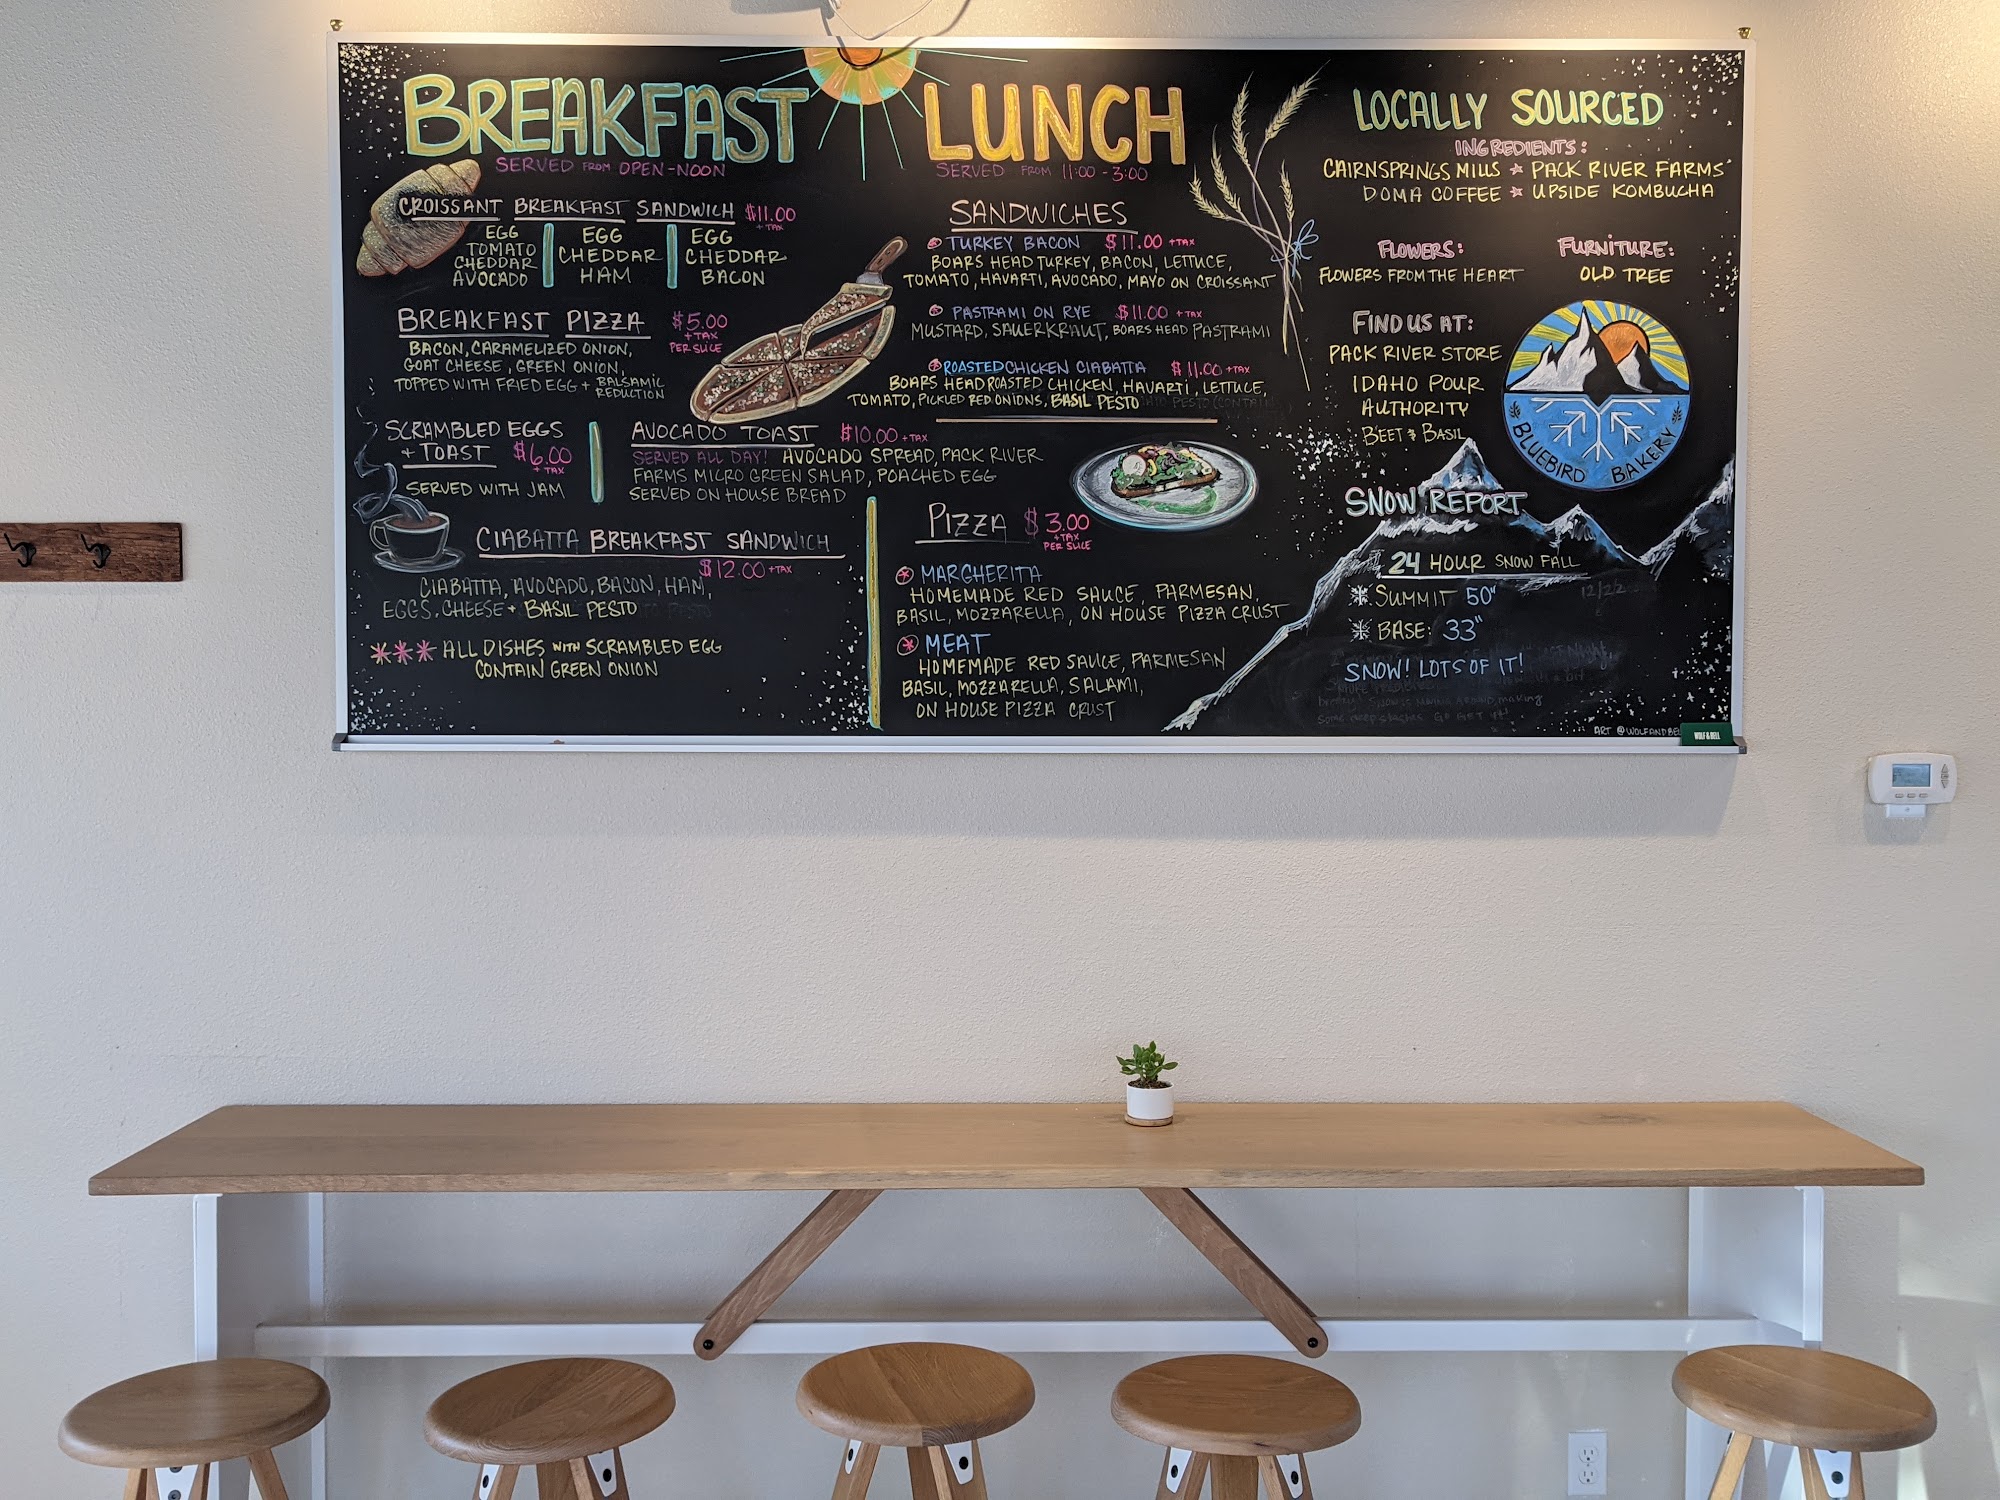 BREAKFAST
SERVED FROM OPEN-NOON
CROISSANT BREAKFAST SANDWICH $11.00
+ TAX
EGG
TOMATO
CHEDDAR
AVOCADO
EGG
CHEDDAR
HAM
EGG
CHEDDAR
BACON
BREAKFAST PIZZA $5.00
+ TAX
PER SLICE
BACON, CARAMELIZED ONION,
GOAT CHEESE, GREEN ONION,
TOPPED WITH FRIED EGG + BALSAMIC
REDUCTION
SCRAMBLED EGGS
+ TOAST $6.00
+ TAX
SERVED WITH JAM
AVOCADO TOAST $10.00 + TAX
SERVED ALL DAY! AVOCADO SPREAD, PACK RIVER
FARMS MICRO GREEN SALAD, POACHED EGG
SERVED ON HOUSE BREAD
CIABATTA BREAKFAST SANDWICH
$12.00 + TAX
CIABATTA, AVOCADO, BACON, HAM,
EGGS, CHEESE + BASIL PESTO
*** ALL DISHES WITH SCRAMBLED EGG
CONTAIN GREEN ONION
LUNCH
SERVED FROM 11:00 - 3:00
SANDWICHES
TURKEY BACON $11.00 + TAX
BOARS HEAD TURKEY, BACON, LETTUCE,
TOMATO, HAVARTI, AVOCADO, MAYO ON CROISSANT
PASTRAMI ON RYE $11.00 + TAX
MUSTARD, SAUERKRAUT, BOARS HEAD PASTRAMI
ROASTED CHICKEN CIABATTA $11.00 + TAX
BOARS HEAD ROASTED CHICKEN, HAVARTI, LETTUCE,
TOMATO, PICKLED RED ONIONS, BASIL PESTO
PIZZA $3.00
+ TAX
PER SLICE
MARGHERITA
HOMEMADE RED SAUCE, PARMESAN,
BASIL, MOZZARELLA, ON HOUSE PIZZA CRUST
MEAT
HOMEMADE RED SAUCE, PARMESAN
BASIL, MOZZARELLA, SALAMI,
ON HOUSE PIZZA CRUST
LOCALLY SOURCED
INGREDIENTS:
CAIRNSPRINGS MILLS ★ PACK RIVER FARMS
DOMA COFFEE ★ UPSIDE KOMBUCHA
FLOWERS:
FLOWERS FROM THE HEART
FURNITURE:
OLD TREE
FIND US AT:
PACK RIVER STORE
IDAHO POUR
AUTHORITY
BEET & BASIL
BLUEBIRD BAKERY
SNOW REPORT
24 HOUR SNOW FALL
SUMMIT 50"
12/22
BASE: 33"
SNOW! LOTS OF IT!
ART @WOLFANDBEL
WOLF & BELL